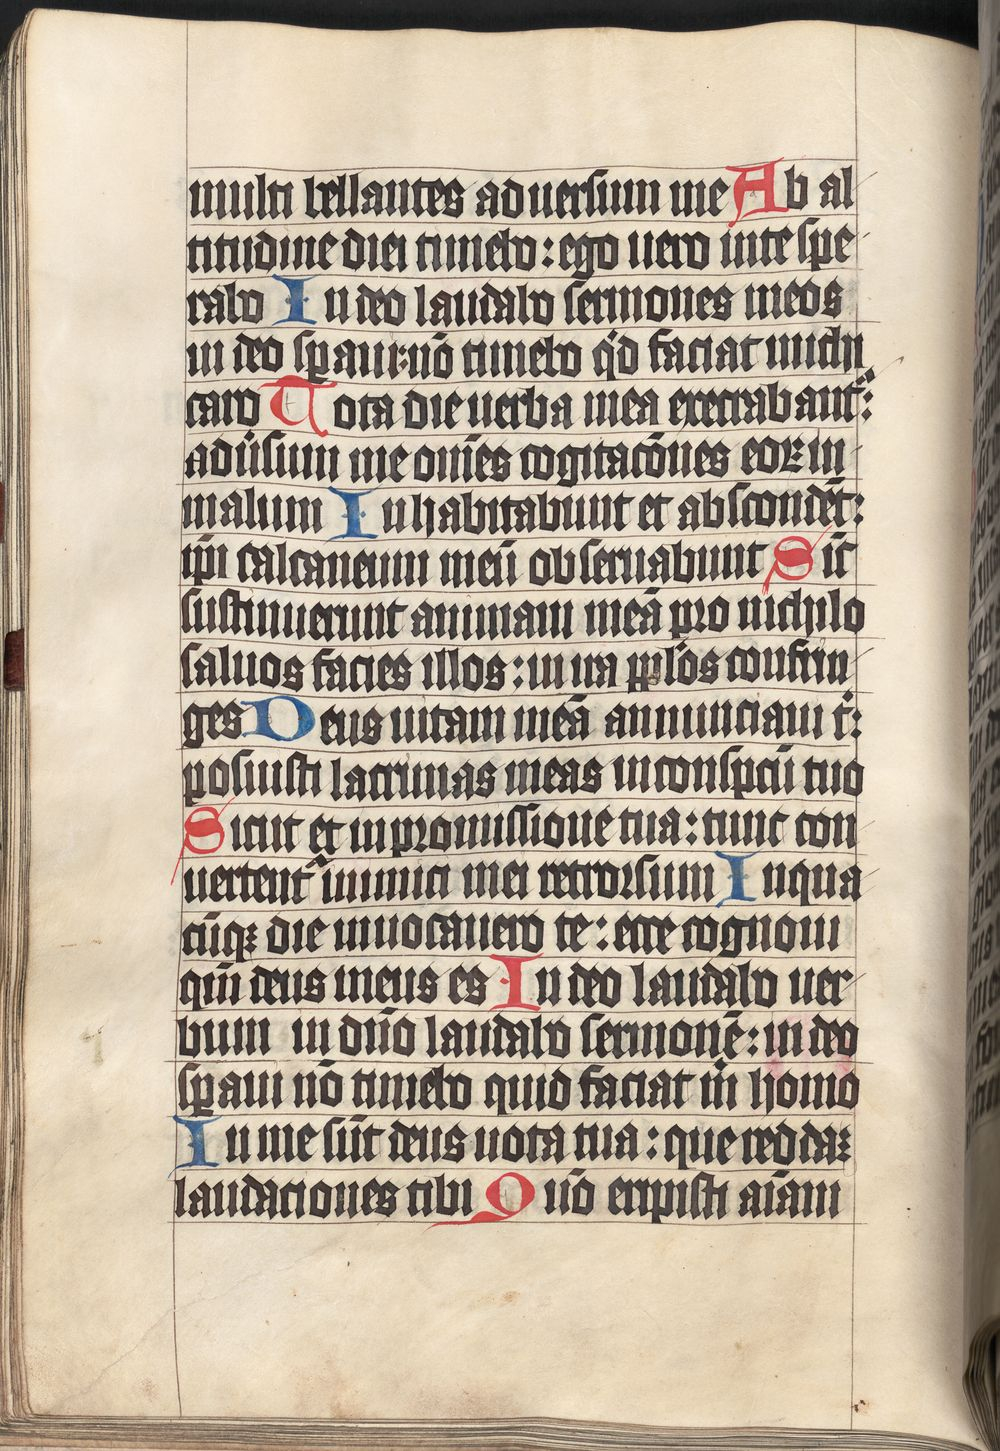 multi bellantes aduersum me Ab al
titudine diei timebo : ego uero inte spe
rabo In deo laudabo sermones meos
in deo sꝑaui : nō timebo qͥd faciat michi
caro Tota die uerba mea execrabantᷣ :
aduͥsum me om̄es cogitacōnes eoꝝ in
malum Inhabitabunt et abscondēt :
ip̄i calcaneum meū obseruabunt Sic̄
sustinuerunt animam meā pro nichilo
saluos facies illos : in ira pp̄los confrin
ges Deus uitam meā annunciaui t̄ :
posuisti lacrimas meas inconspcū tuo
Sicut et inpromissione tua : tunc con
uertentᷣ inimici mei retrorsum Inqua
cūqꝫ die inuocauero te : ecce cognoui
qm̄ deus meus es In deo laudabo uer
bum in dn̄o laudabo sermonē : in deo
sꝑaui nō timebo quid faciat m̄ homo
In me sūt deus uota tua : que reddaꝫ
laudaciones tibi Qn̄o eripuisti aīam